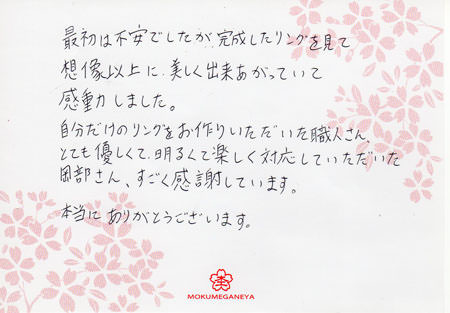 最初は不安でしたが、完成したリングを見て
想像以上に、美しく出来あがっていて
感動力しました。
自分だけのリングをお作りいただいた職人さん、
とても優しくて、明るくて楽しく対応していただいた
岡部さん、すごく感謝しています。
本当にありがとうございます。
MOKUMEGANEYA